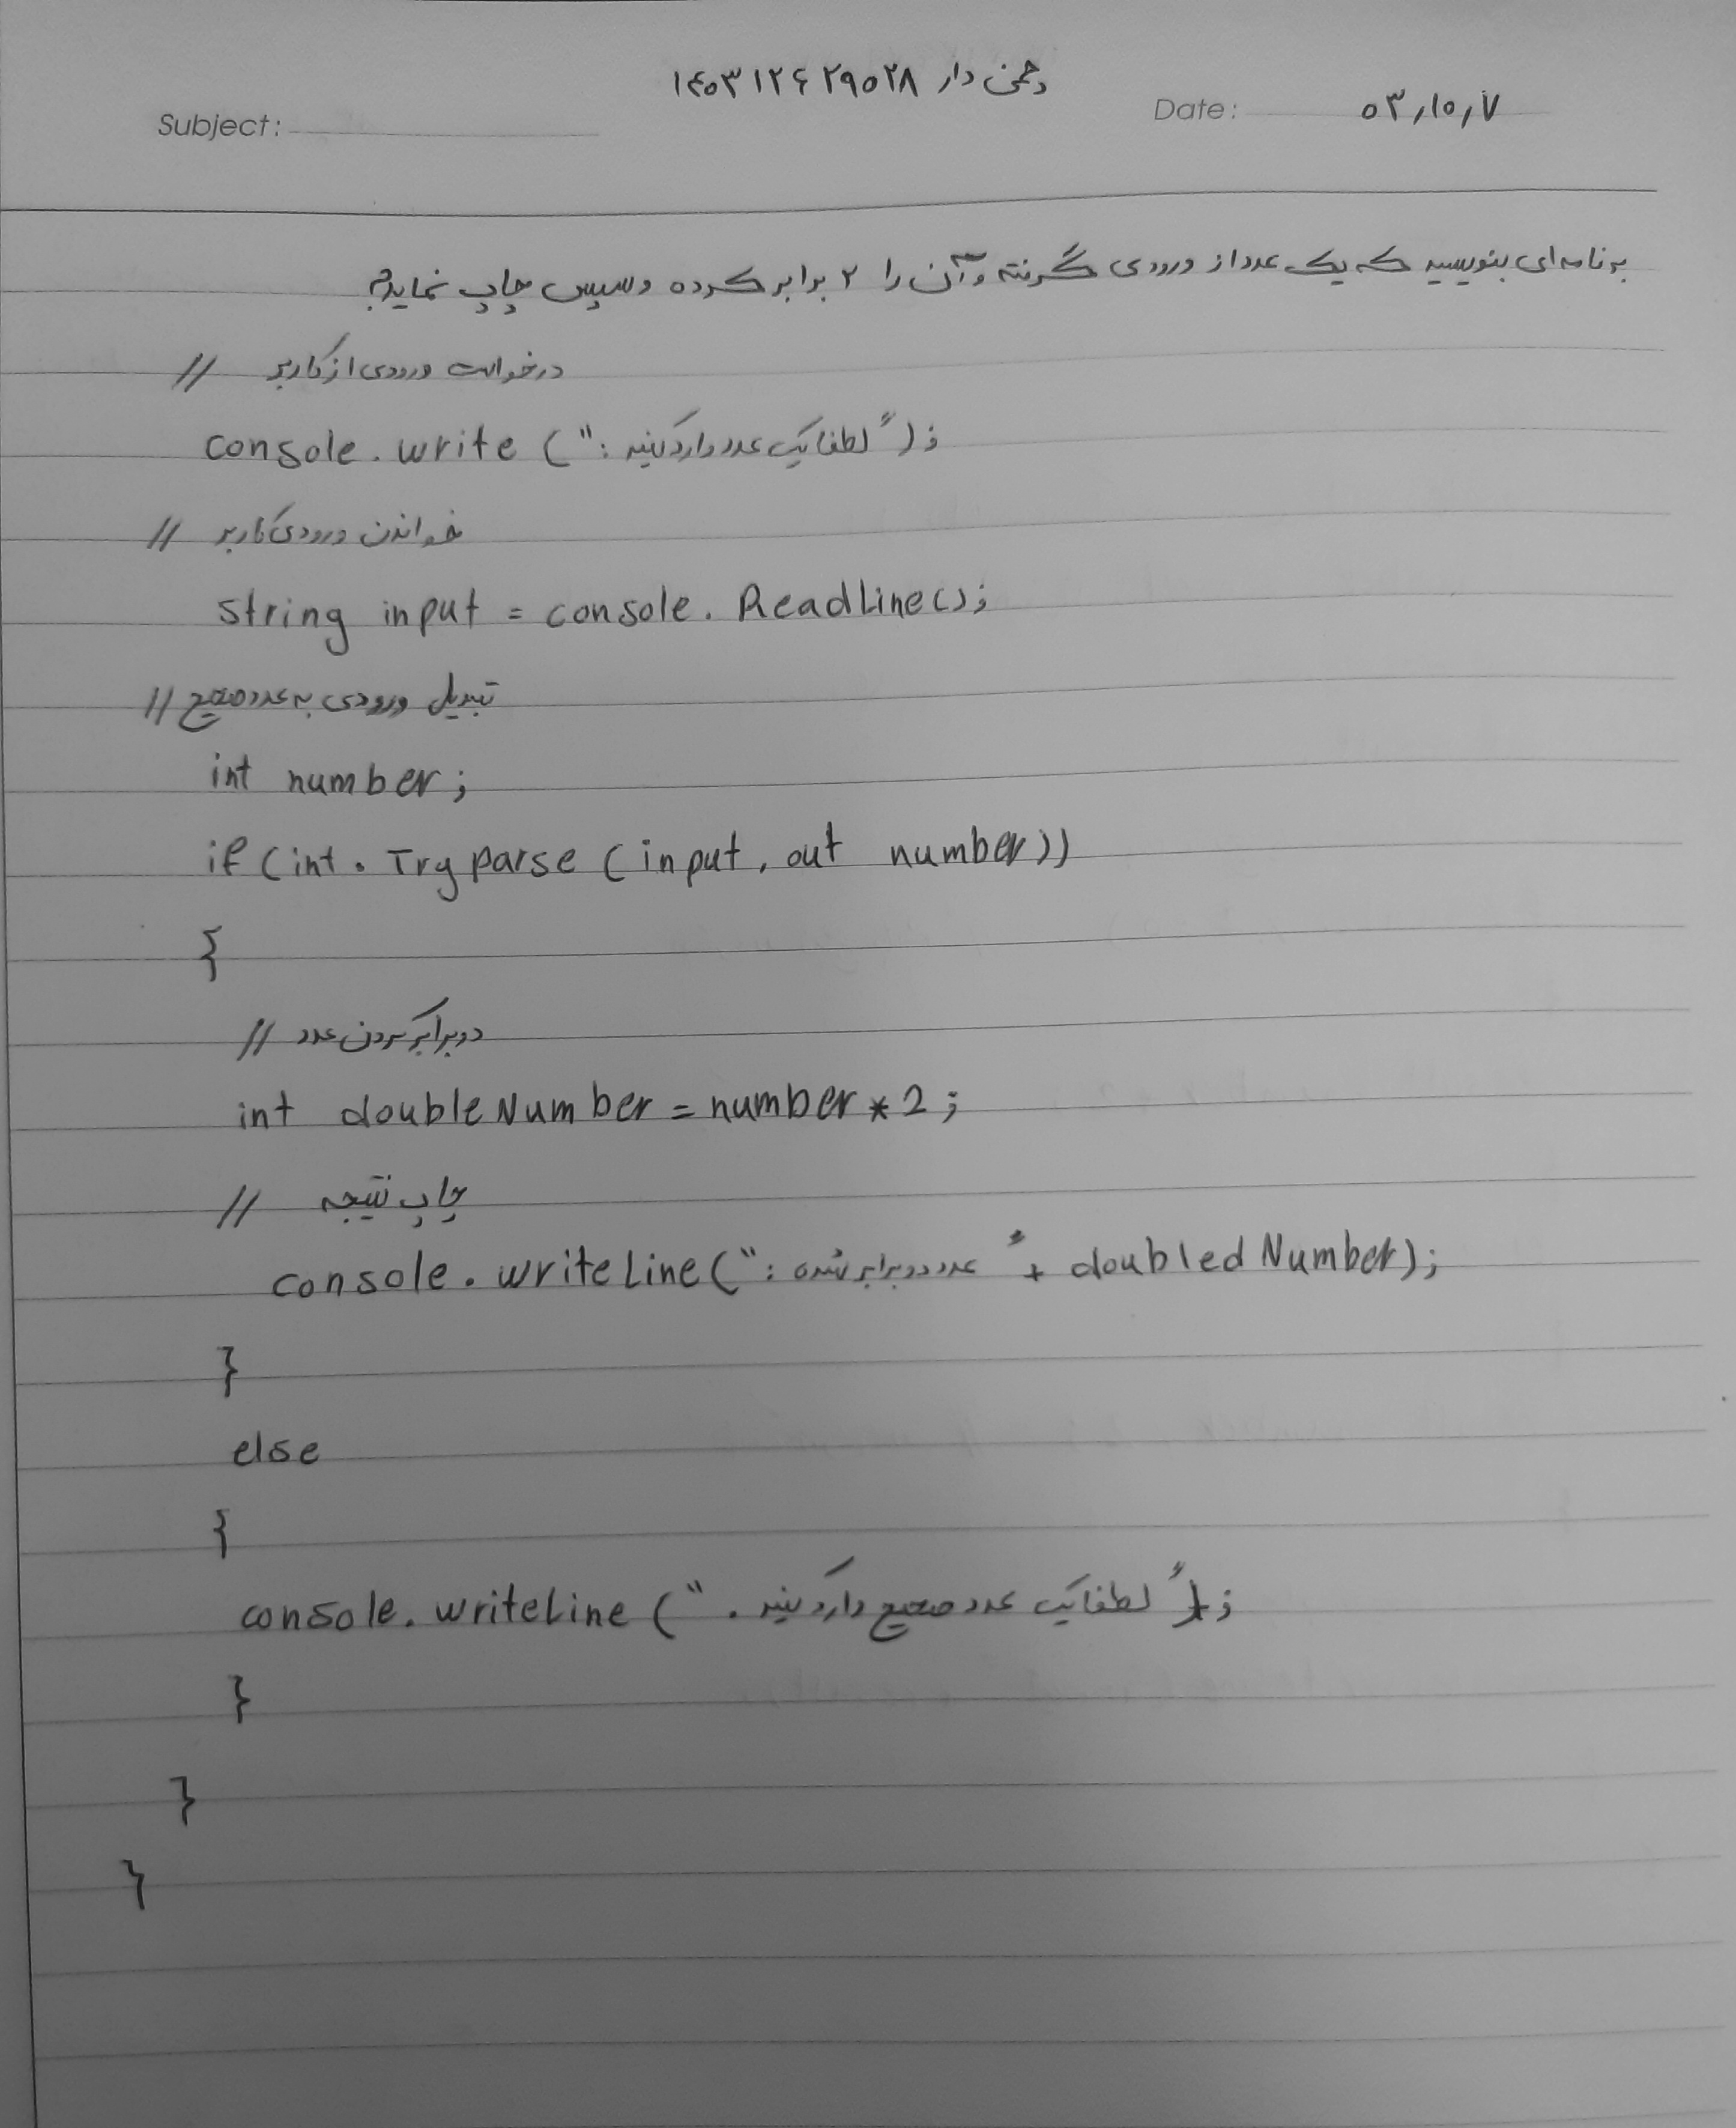 دار ۱۴۰۳۱۲۶۲۹۰۲۸
Subject:
Date: ۰۳,۱۰,۷
برنامه‌ای بنویسید که یک عدد از ورودی گرفته و آن را ۲ برابر کرده و سپس چاپ نماید؟
// درخواست ورودی از کاربر
console.write (": لطفا یک عدد وارد کنید");
// خواندن ورودی کاربر
string input = console.ReadLine();
// تبدیل ورودی به عدد صحیح
int number;
if (int.Tryparse (input, out number))
{
// دو برابر کردن عدد
int doubleNumber = number * 2;
// چاپ نتیجه
console.writeLine(": عدد دو برابر شده" + doubledNumber);
}
else
{
console.writeLine (". لطفا یک عدد صحیح وارد کنید");
}
}
}